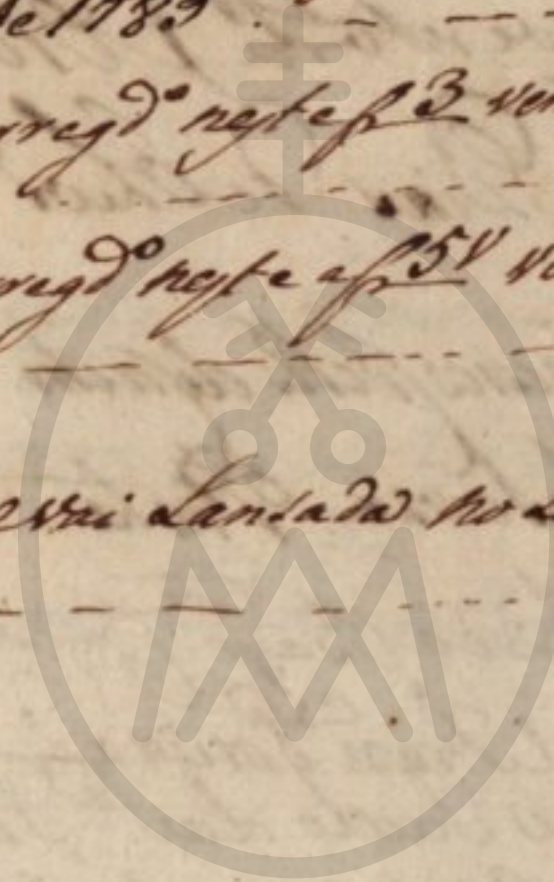 de 1789
rregd.º neste a f 3 ver
rregd.º neste a f 5 v ve
e vai Lansada no L